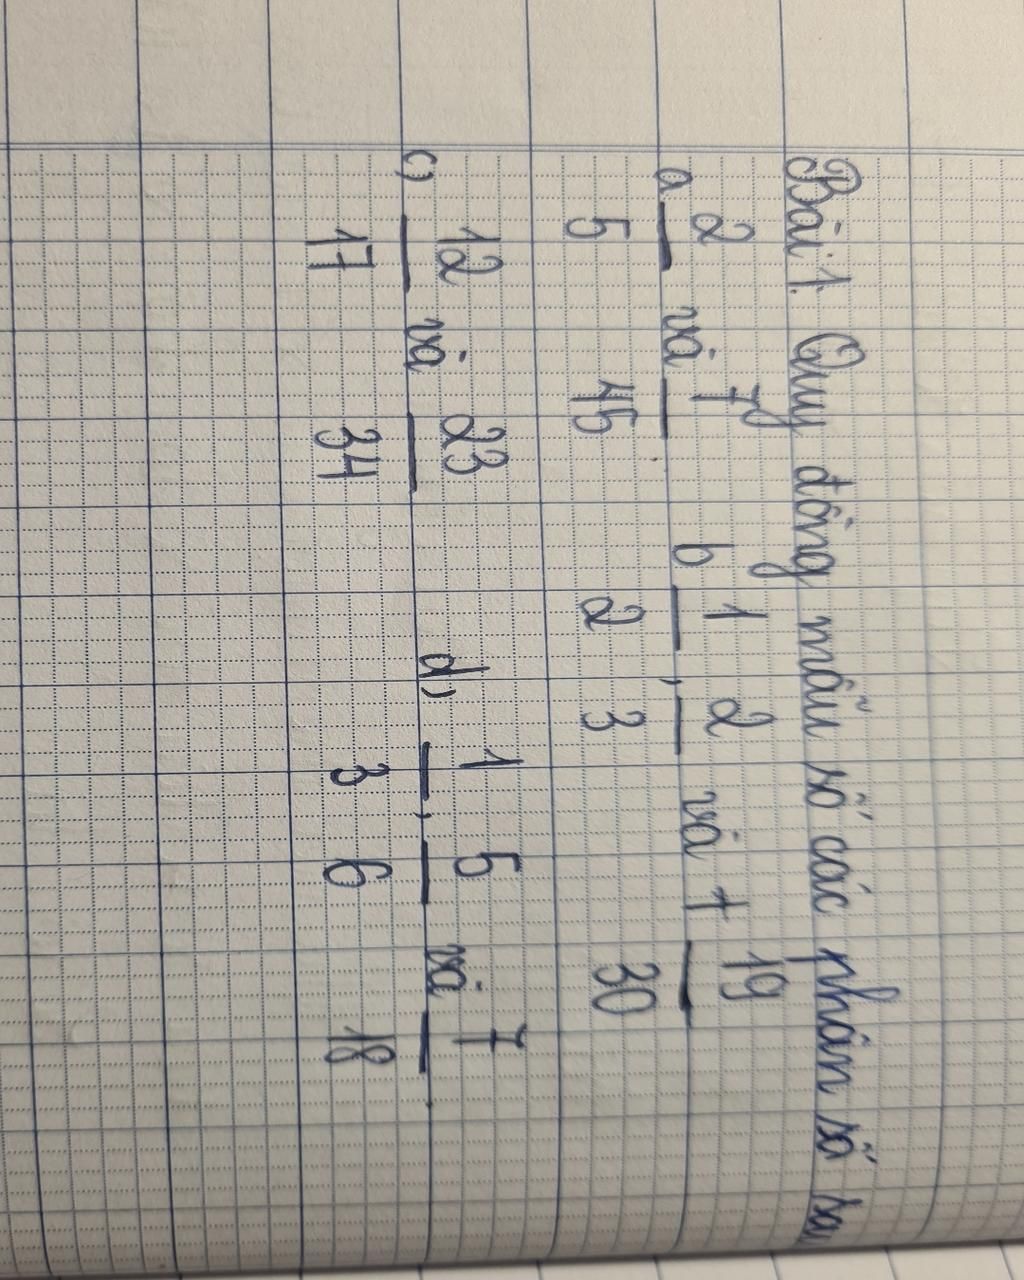 Bài 1. Quy đồng mẫu số các phân số sau
a 2/5 và 7/45 b 1/2, 2/3 và 19/30
c) 12/17 và 23/34 d) 1/3, 5/6 và 7/18